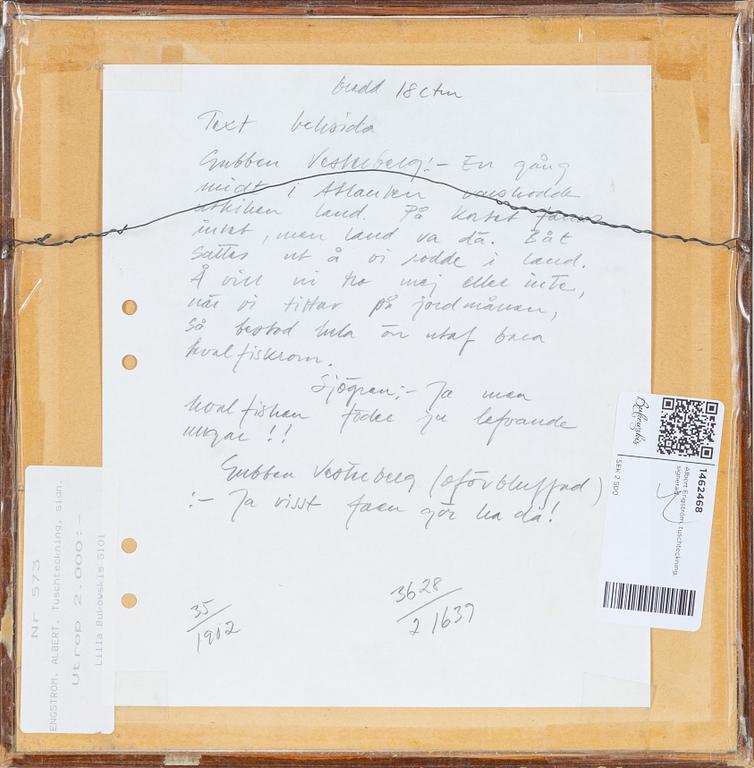 bredd 18 ctm
Text baksida
Gubben Vesterberg:- En gång
midt i Atlanten
utkiken land. På kortet fanns
intet, men land va dä. Båt
sattes ut å vi rodde i land.
Å vill ni tro mej eller inte,
när vi tittar på jordmånen,
så bestod hela ön utaf bara
hvalfiskrom.
Sjögren:- Ja men
hvalfisken föder ju lefvande
ungar !!
Gubben Vesterberg (oförbluffad)
:- Ja visst faen gör ha dä!
35/1912
3628/2 1637
Nr 573
ENGSTRÖM, ALBERT, Tuschteckning, sign.
Utrop 2.000:-
Lilla Bukowskis 5101
Bukowskis
1462468
Albert Engström, tuschteckning,
signerad
SEK 2 500